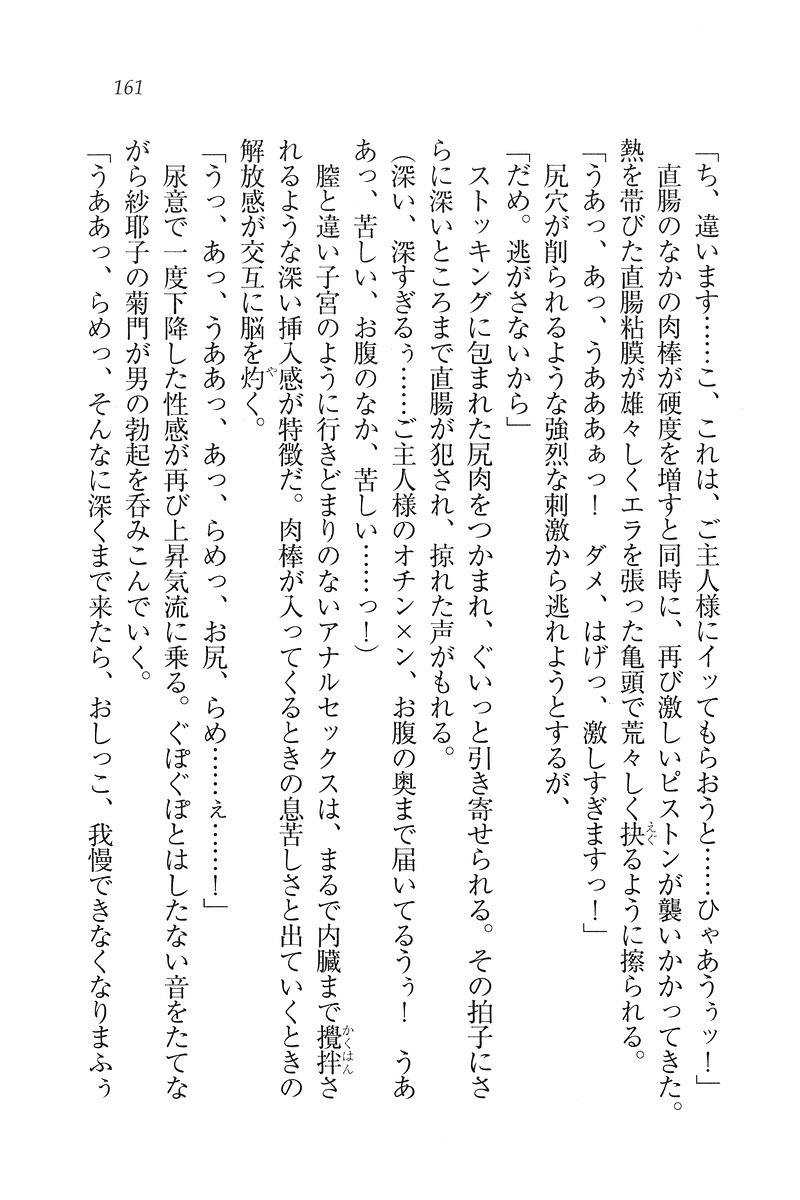 161
「ち、違います……こ、これは、ご主人様にイッてもらおうと……ひゃあうぅッ！」
直腸のなかの肉棒が硬度を増すと同時に、再び激しいピストンが襲いかかってきた。
熱を帯びた直腸粘膜が雄々しくエラを張った亀頭で荒々しく抉るように擦られる。
「うあっ、あっ、うあああぁっ！　ダメ、はげっ、激しすぎますっ！」
尻穴が削られるような強烈な刺激から逃れようとするが、
「だめ。逃がさないから」
ストッキングに包まれた尻肉をつかまれ、ぐいっと引き寄せられる。その拍子にさ
らに深いところまで直腸が犯され、掠れた声がもれる。
（深い、深すぎるぅ……ご主人様のオチン×ン、お腹の奥まで届いてるうぅ！　うあ
あっ、苦しい、お腹のなか、苦しい……っ！）
膣と違い子宮のように行きどまりのないアナルセックスは、まるで内臓まで攪拌さ
れるような深い挿入感が特徴だ。肉棒が入ってくるときの息苦しさと出ていくときの
解放感が交互に脳を灼く。
「うっ、あっ、うああっ、あっ、らめっ、お尻、らめ……ぇ……！」
尿意で一度下降した性感が再び上昇気流に乗る。ぐぽぐぽとはしたない音をたてな
がら紗耶子の菊門が男の勃起を呑みこんでいく。
「うああっ、らめっ、そんなに深くまで来たら、おしっこ、我慢できなくなりまふぅ